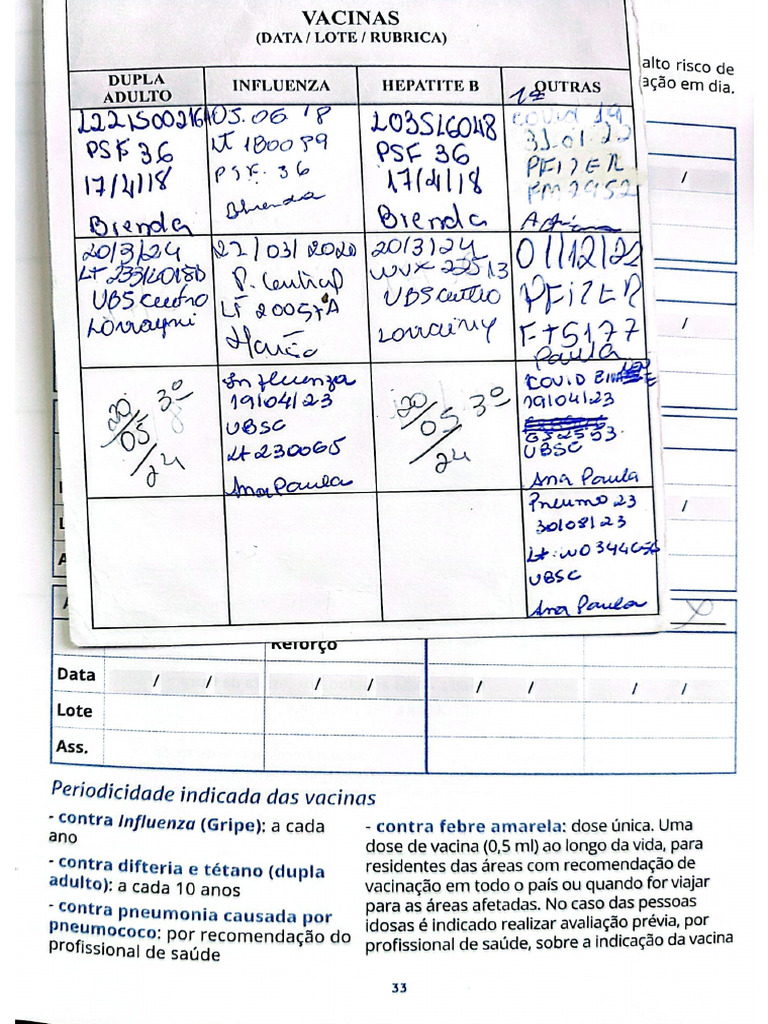 VACINAS
(DATA / LOTE / RUBRICA)
alto risco de
ação em dia.
DUPLA
ADULTO
INFLUENZA
HEPATITE B
OUTRAS
1ª
PSF 36
17/4/18
Brenda
05.06.18
LT 180089
PSF. 36
Bhrenda
203SL6048
PSF 36
17/4/18
Brenda
COVID 19
31.01.22
PFIZER
FM2952
20/3/24
UBS Centro
22/03/2020
P. Central
20/3/24
UBS Centro
01/12/22
PFIZER
FT5177
Paula
20/05/24
3º
Influenza
19/04/23
UBSC
Lt 230065
Ana Paula
20/05/24
3º
COVID
19/04/23
UBSC
Ana Paula
Pneumo 23
30/08/23
UBSC
Ana Paula
L
A
Reforço
Data / / / / / / / /
Lote
Ass.
Periodicidade indicada das vacinas
- contra Influenza (Gripe): a cada
ano
- contra difteria e tétano (dupla
adulto): a cada 10 anos
- contra pneumonia causada por
pneumococo: por recomendação do
profissional de saúde
- contra febre amarela: dose única. Uma
dose de vacina (0,5 ml) ao longo da vida, para
residentes das áreas com recomendação de
vacinação em todo o país ou quando for viajar
para as áreas afetadas. No caso das pessoas
idosas é indicado realizar avaliação prévia, por
profissional de saúde, sobre a indicação da vacina
33